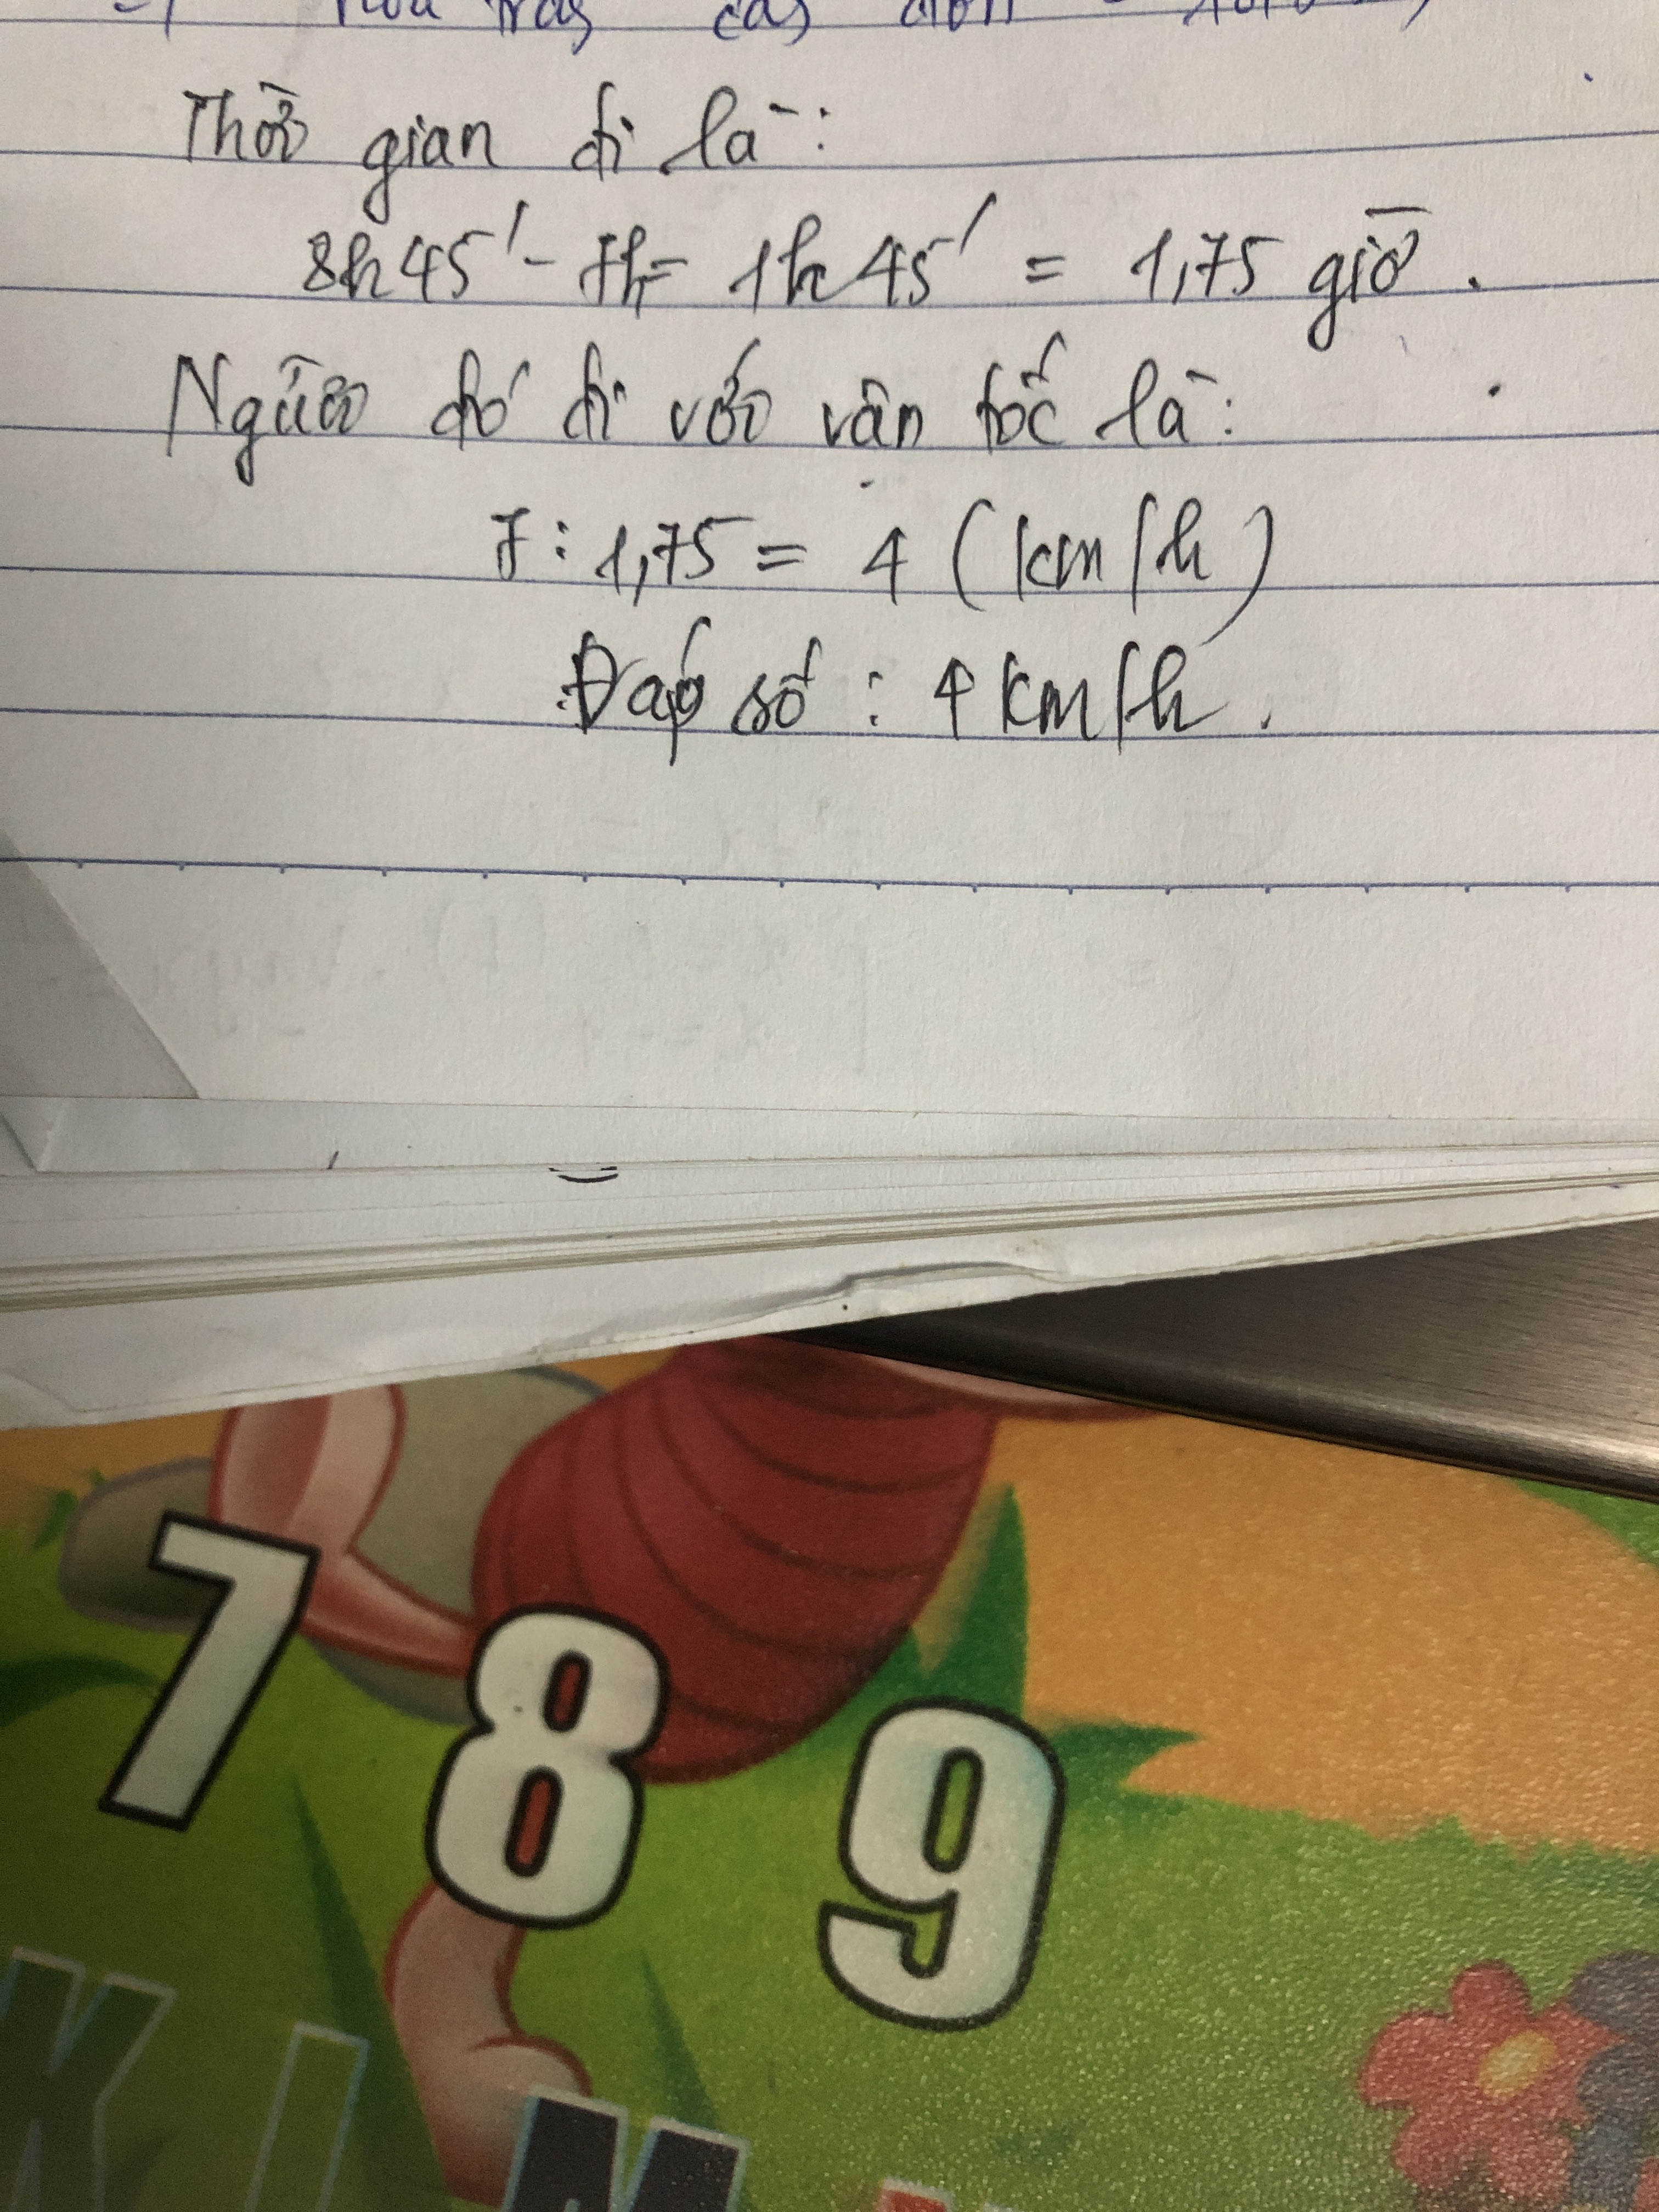 Thời gian đi là:
8h45' - 7h = 1h45' = 1,75 giờ.
Người đó đi với vận tốc là:
7 : 1,75 = 4 (km/h)
Đáp số : 4 km/h.
7 8 9
K I M